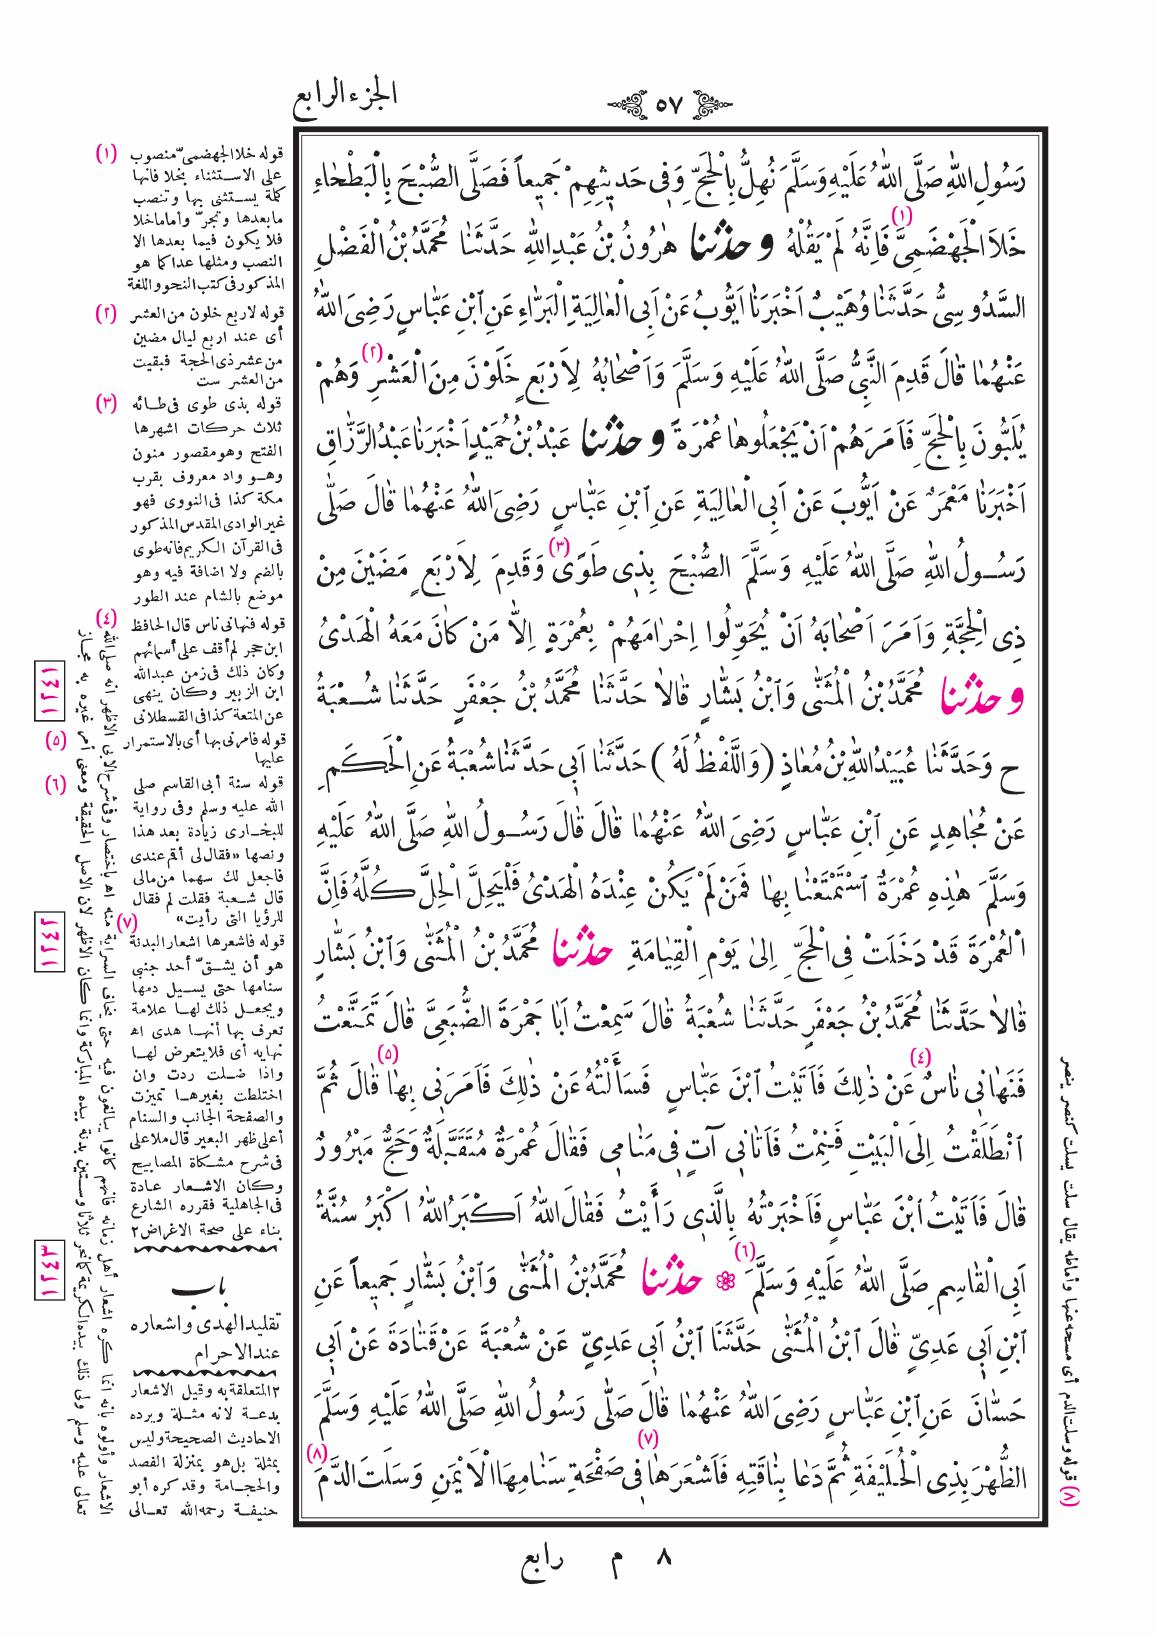 الجزء الرابع
٥٧
رَسُولِ اللّٰهِ صَلَّى اللّٰهُ عَلَيْهِ وَسَلَّمَ نُهِلُّ بِالْحَجِّ وَفِى حَدِيثِهِمْ جَمِيعاً فَصَلَّى الصُّبْحَ بِالْبَطْحَاءِ
خَلاَ الْجَهْضَمِىَّ (١) فَاِنَّهُ لَمْ يَقُلْهُ وحدثنا هٰرُونُ بْنُ عَبْدِ اللّٰهِ حَدَّثَنَا مُحَمَّدُ بْنُ الْفَضْلِ
السَّدُوسِىُّ حَدَّثَنَا وُهَيْبٌ اَخْبَرَنَا اَيُّوبُ عَنْ اَبِى الْعَالِيَةِ الْبَرَّاءِ عَنِ ابْنِ عَبَّاسٍ رَضِىَ اللّٰهُ
عَنْهُمَا قَالَ قَدِمَ النَّبِىُّ صَلَّى اللّٰهُ عَلَيْهِ وَسَلَّمَ وَاَصْحَابُهُ لِاَرْبَعٍ خَلَوْنَ مِنَ الْعَشْرِ (٢) وَهُمْ
يُلَبُّونَ بِالْحَجِّ فَاَمَرَهُمْ اَنْ يَجْعَلُوهَا عُمْرَةً وحدثنا عَبْدُ بْنُ حُمَيْدٍ اَخْبَرَنَا عَبْدُ الرَّزَّاقِ
اَخْبَرَنَا مَعْمَرٌ عَنْ اَيُّوبَ عَنْ اَبِى الْعَالِيَةِ عَنِ ابْنِ عَبَّاسٍ رَضِىَ اللّٰهُ عَنْهُمَا قَالَ صَلَّى
رَسُولُ اللّٰهِ صَلَّى اللّٰهُ عَلَيْهِ وَسَلَّمَ الصُّبْحَ بِذِى طَوًى (٣) وَقَدِمَ لِاَرْبَعٍ مَضَيْنَ مِنْ
ذِى الْحِجَّةِ وَاَمَرَ اَصْحَابَهُ اَنْ يُحَوِّلُوا اِحْرَامَهُمْ بِعُمْرَةٍ اِلَّا مَنْ كَانَ مَعَهُ الْهَدْىُ
وحدثنا مُحَمَّدُ بْنُ الْمُثَنَّى وَابْنُ بَشَّارٍ قَالاَ حَدَّثَنَا مُحَمَّدُ بْنُ جَعْفَرٍ حَدَّثَنَا شُعْبَةُ
ح وَحَدَّثَنَا عُبَيْدُ اللّٰهِ بْنُ مُعَاذٍ (وَاللَّفْظُ لَهُ) حَدَّثَنَا اَبِى حَدَّثَنَا شُعْبَةُ عَنِ الْحَكَمِ
عَنْ مُجَاهِدٍ عَنِ ابْنِ عَبَّاسٍ رَضِىَ اللّٰهُ عَنْهُمَا قَالَ قَالَ رَسُولُ اللّٰهِ صَلَّى اللّٰهُ عَلَيْهِ
وَسَلَّمَ هٰذِهِ عُمْرَةٌ اسْتَمْتَعْنَا بِهَا فَمَنْ لَمْ يَكُنْ عِنْدَهُ الْهَدْىُ فَلْيَحِلَّ الْحِلَّ كُلَّهُ فَاِنَّ
الْعُمْرَةَ قَدْ دَخَلَتْ فِى الْحَجِّ اِلَى يَوْمِ الْقِيَامَةِ حدثنا مُحَمَّدُ بْنُ الْمُثَنَّى وَابْنُ بَشَّارٍ
قَالاَ حَدَّثَنَا مُحَمَّدُ بْنُ جَعْفَرٍ حَدَّثَنَا شُعْبَةُ قَالَ سَمِعْتُ اَبَا جَمْرَةَ الضُّبَعِىَّ قَالَ تَمَتَّعْتُ
فَنَهَانِى نَاسٌ (٤) عَنْ ذٰلِكَ فَاَتَيْتُ ابْنَ عَبَّاسٍ فَسَاَلْتُهُ عَنْ ذٰلِكَ فَاَمَرَنِى بِهَا (٥) قَالَ ثُمَّ
انْطَلَقْتُ اِلَى الْبَيْتِ فَنِمْتُ فَاَتَانِى آتٍ فِى مَنَامِى فَقَالَ عُمْرَةٌ مُتَقَبَّلَةٌ وَحَجٌّ مَبْرُورٌ
قَالَ فَاَتَيْتُ ابْنَ عَبَّاسٍ فَاَخْبَرْتُهُ بِالَّذِى رَأَيْتُ فَقَالَ اللّٰهُ اَكْبَرُ اللّٰهُ اَكْبَرُ سُنَّةُ
اَبِى الْقَاسِمِ صَلَّى اللّٰهُ عَلَيْهِ وَسَلَّمَ (٦) حدثنا مُحَمَّدُ بْنُ الْمُثَنَّى وَابْنُ بَشَّارٍ جَمِيعاً عَنِ
ابْنِ اَبِى عَدِىٍّ قَالَ ابْنُ الْمُثَنَّى حَدَّثَنَا ابْنُ اَبِى عَدِىٍّ عَنْ شُعْبَةَ عَنْ قَتَادَةَ عَنْ اَبِى
حَسَّانَ عَنِ ابْنِ عَبَّاسٍ رَضِىَ اللّٰهُ عَنْهُمَا قَالَ صَلَّى رَسُولُ اللّٰهِ صَلَّى اللّٰهُ عَلَيْهِ وَسَلَّمَ
الظُّهْرَ بِذِى الْحُلَيْفَةِ ثُمَّ دَعَا بِنَاقَتِهِ فَاَشْعَرَهَا (٧) فِى صَفْحَةِ سَنَامِهَا الْاَيْمَنِ وَسَلَتَ الدَّمَ (٨)
(١) قوله خلا الجهضمىّ منصوب
على الاستثناء بخلا فانها
كلمة يستثنى بها وتنصب
مابعدها وتجرّ وأماماخلا
فلا يكون فيما بعدها الا
النصب ومثلها عدا كما هو
المذكور فى كتب النحو واللغة
(٢) قوله لاربع خلون من العشر
أى عند اربع ليال مضين
من عشر ذى الحجة فبقيت
من العشر ست
(٣) قوله بذى طوى فى طائه
ثلاث حركات اشهرها
الفتح وهو مقصور منون
وهو واد معروف بقرب
مكة كذا فى النووى فهو
غير الوادى المقدس المذكور
فى القرآن الكريم فانه طوى
بالضم ولا اضافة فيه وهو
موضع بالشام عند الطور
(٤) قوله فنهانى ناس قال الحافظ
ابن حجر لم أقف على أسمائهم
وكان ذلك فى زمن عبدالله
ابن الزبير وكان ينهى
عن المتعة كذا فى القسطلانى
(٥) قوله فامرنى بها أى بالاستمرار
عليها
(٦) قوله سنة أبى القاسم صلى
الله عليه وسلم وفى رواية
للبخارى زيادة بعد هذا
ونصها «فقال لى أقم عندى
فاجعل لك سهما من مالى
قال شعبة فقلت لم فقال
للرؤيا التى رأيت»
(٧) قوله فاشعرها اشعار البدنة
هو أن يشقّ أحد جنبى
سنامها حتى يسيل دمها
ويجعل ذلك لها علامة
تعرف بها أنها هدى اه
نهايه أى فلا يتعرض لها
واذا ضلت ردت وان
اختلطت بغيرها تميزت
والصفحة الجانب والسنام
أعلى ظهر البعير قال ملا على
فى شرح مشكاة المصابيح
وكان الاشعار عادة
فى الجاهلية فقرره الشارع
بناء على صحة الاغراض ٢
باب
تقليد الهدى واشعاره
عند الاحرام
٢ المتعلقة به وقيل الاشعار
بدعة لانه مثلة ويرده
الاحاديث الصحيحة وليس
بمثلة بل هو بمنزلة الفصد
والحجامة وقد كره أبو
حنيفة رحمه الله تعالى
الاشعار وأولوه بانه انما كره اشعار أهل زمانه فانهم كانوا يبالغون فيه حتى يخاف السراية منه اه باختصار وفى شرح الابى الاظهر انه صلى الله
تعالى عليه وسلم ولى ذلك بيده الكريمة كما نحر ثلاثا وستين بدنة بيده المباركة وانما كان الاظهر لان الاصل الحقيقة ومعنى أمر غيره به مجاز
(٨) قوله وسلت الدم أى مسحه عنها وأماطه يقال سلت يسلت كنصر ينصر
١٢٤١
١٢٤٢
١٢٤٣
٨ م رابع